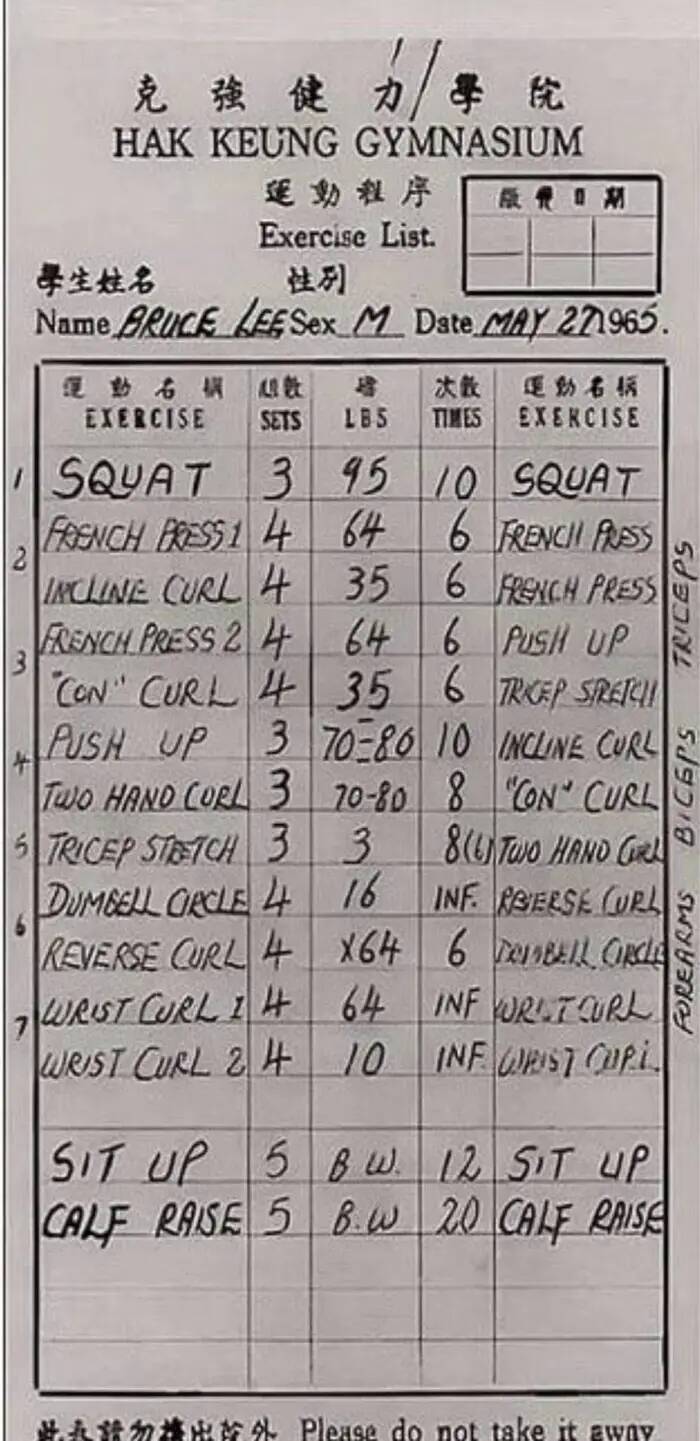 克強健力學院
HAK KEUNG GYMNASIUM
運動程序
Exercise List.
繳費日期
學生姓名 性別
Name BRUCE LEE Sex M Date MAY 27 1965.
運動名稱 組數 磅 次數 運動名稱
EXERCISE SETS LBS TIMES EXERCISE
1 SQUAT 3 95 10 SQUAT
2 FRENCH PRESS 1 4 64 6 FRENCH PRESS
INCLINE CURL 4 35 6 FRENCH PRESS
3 FRENCH PRESS 2 4 64 6 PUSH UP
"CON" CURL 4 35 6 TRICEP STRETCH
4 PUSH UP 3 70-80 10 INCLINE CURL
TWO HAND CURL 3 70-80 8 "CON" CURL
5 TRICEP STRETCH 3 3 8(6) TWO HAND CURL
DUMBELL CIRCLE 4 16 INF. REVERSE CURL
6 REVERSE CURL 4 X64 6 DUMBELL CIRCLE
WRIST CURL 1 4 64 INF WRIST CURL
7 WRIST CURL 2 4 10 INF. WRIST CURL
SIT UP 5 B.W. 12 SIT UP
CALF RAISE 5 B.W 20 CALF RAISE
TRICEPS
BICEPS
FOREARMS
請勿攜出院外 Please do not take it away